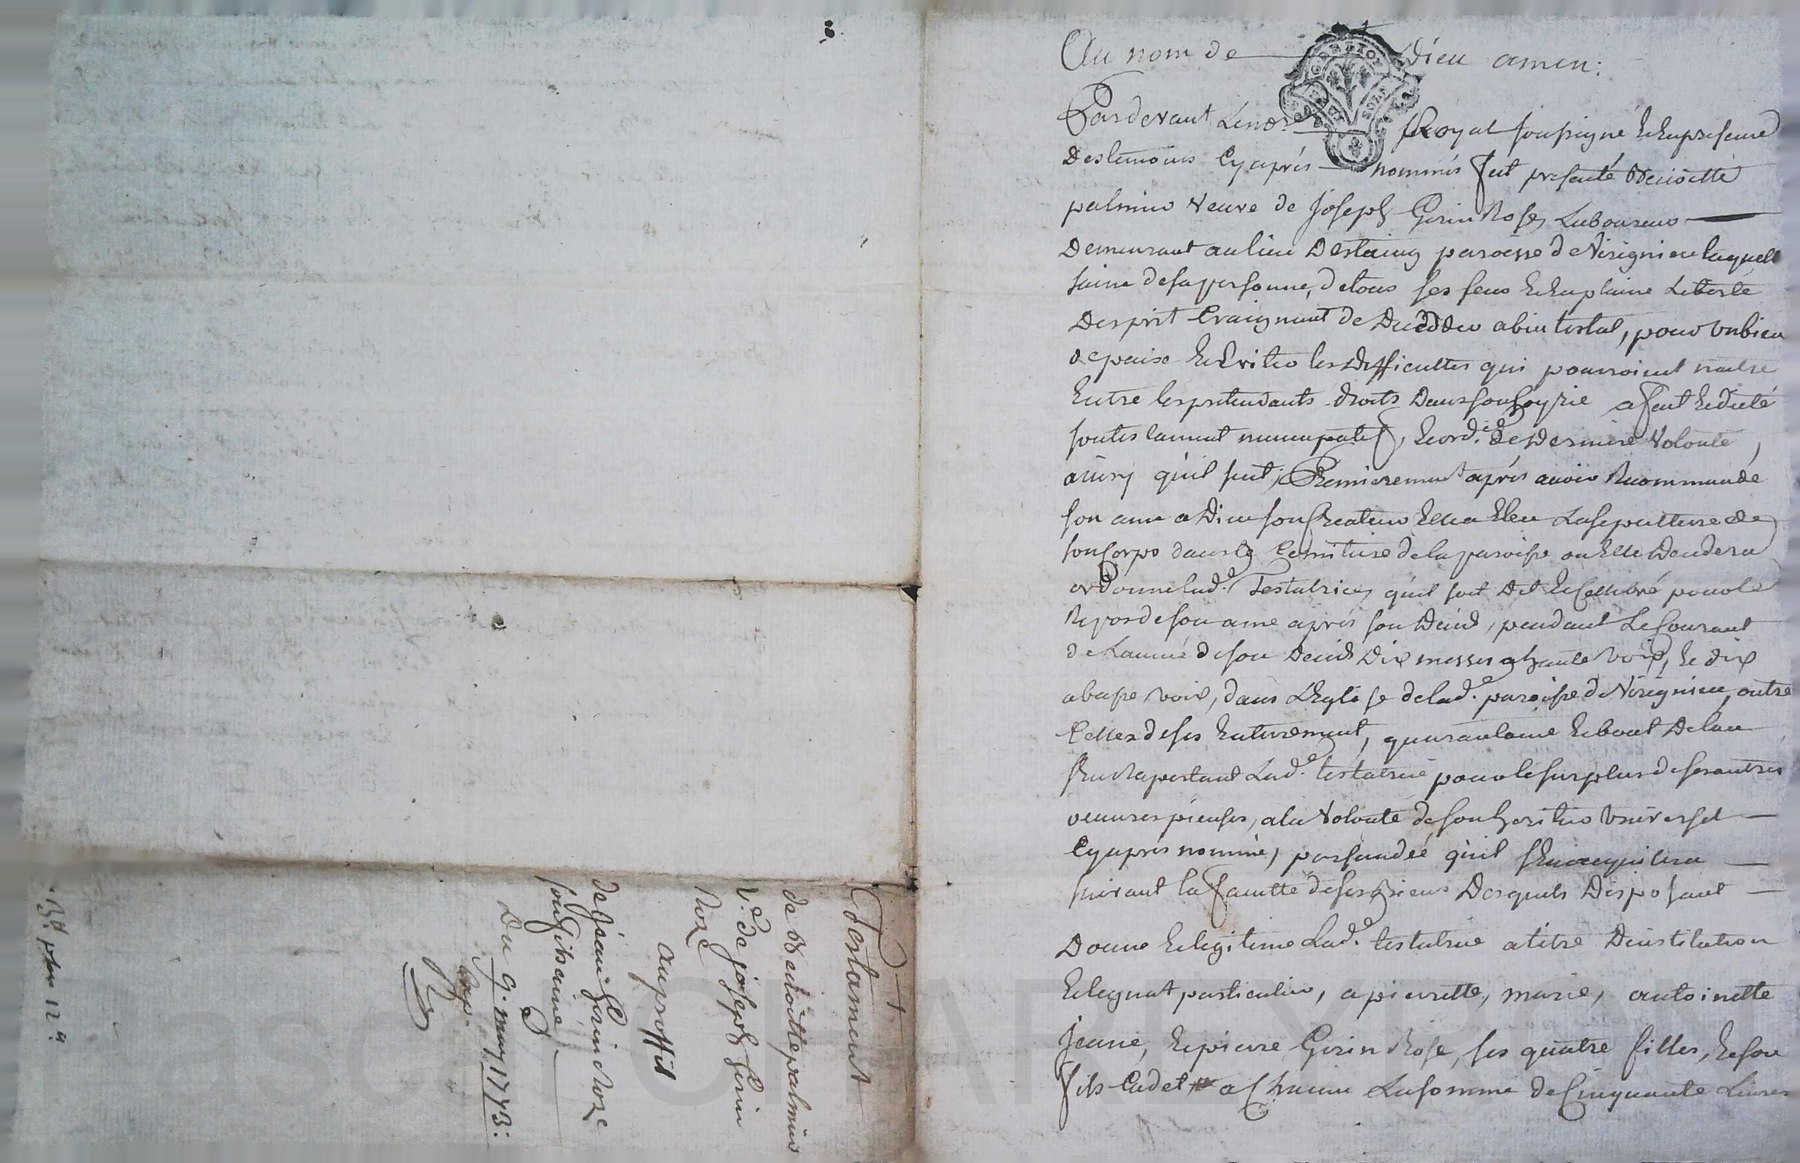 Au nom de Dieu amen:
Pardevant Le nore Royal soussigné & en presence
Des temoins Cy aprés nommés fut presente Benoitte
palmier veuve de Joseph Girin Rose, Laboureur
Demeurant au lieu Destaing paroisse de Virignieu laquelle
saine de sa personne, de tous ses sens & En plaine Liberté
Desprit Craignant de Deceder abintestat, pour un bien
de paix & Eviter les Difficultes qui pourroient naitre
Entre les pretendants droits Dans son hoyrie a fait & dicté
son testament nuncupatif, & ord.ce de Derniere volonte,
ainsy quil suit, Premierement aprés avoir Recommandé
son ame a Dieu son Createur Elle a Eleu La sepulture de
son Corps dans le Cemitiere de la paroisse ou Elle Decedera
ordonne lad.e Testatrice, quil soit Dit & Cellebré pour le
Repos de son ame aprés son Decés, pendant Le Courant
de L'année de son Decés Dix messes a haute voix, & dix
a basse voix, dans L'Eglise de lad.e paroisse de Virignieu, outre
Celles de ses Enterement, quarantaine & bout De lan
s'En Raportant Lad.e testatrice pour le surplus de ses autres
oeuvres pieuses, a la volonté de son heritier universel
Cy aprés nommé, persuadée quil s'En acquitera
suivant la faculté de ses Biens Desquels Disposant
Donne & legitime Lad.e testatrice a titre Dinstitution
& legat particulier, a pierrette, marie, antoinette
Jeanne, & pierre Girin Rose, ses quatre filles, & son
fils Cadet a Chacun La somme de Cinquante Livres
Testament
de Benoitte palmier
v.e de joseph Girin
Roze
au proffit
de Jean Girin Roze
son fils ainé
Du 9. may 1773: